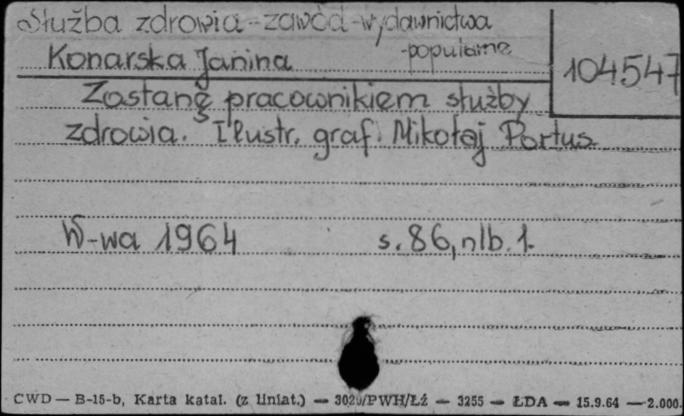 Służba zdrowia - zawód - wydawnictwa
popularne
Konarska Janina
104547
Zostanę pracownikiem służby
zdrowia. Ilustr. graf. Mikołaj Portus
W-wa 1964 s. 86, nlb. 1.
CWD — B-15-b, Karta katal. (z liniat.) — 3029/PWH/Łź — 3255 — ŁDA — 15.9.64 — 2.000.